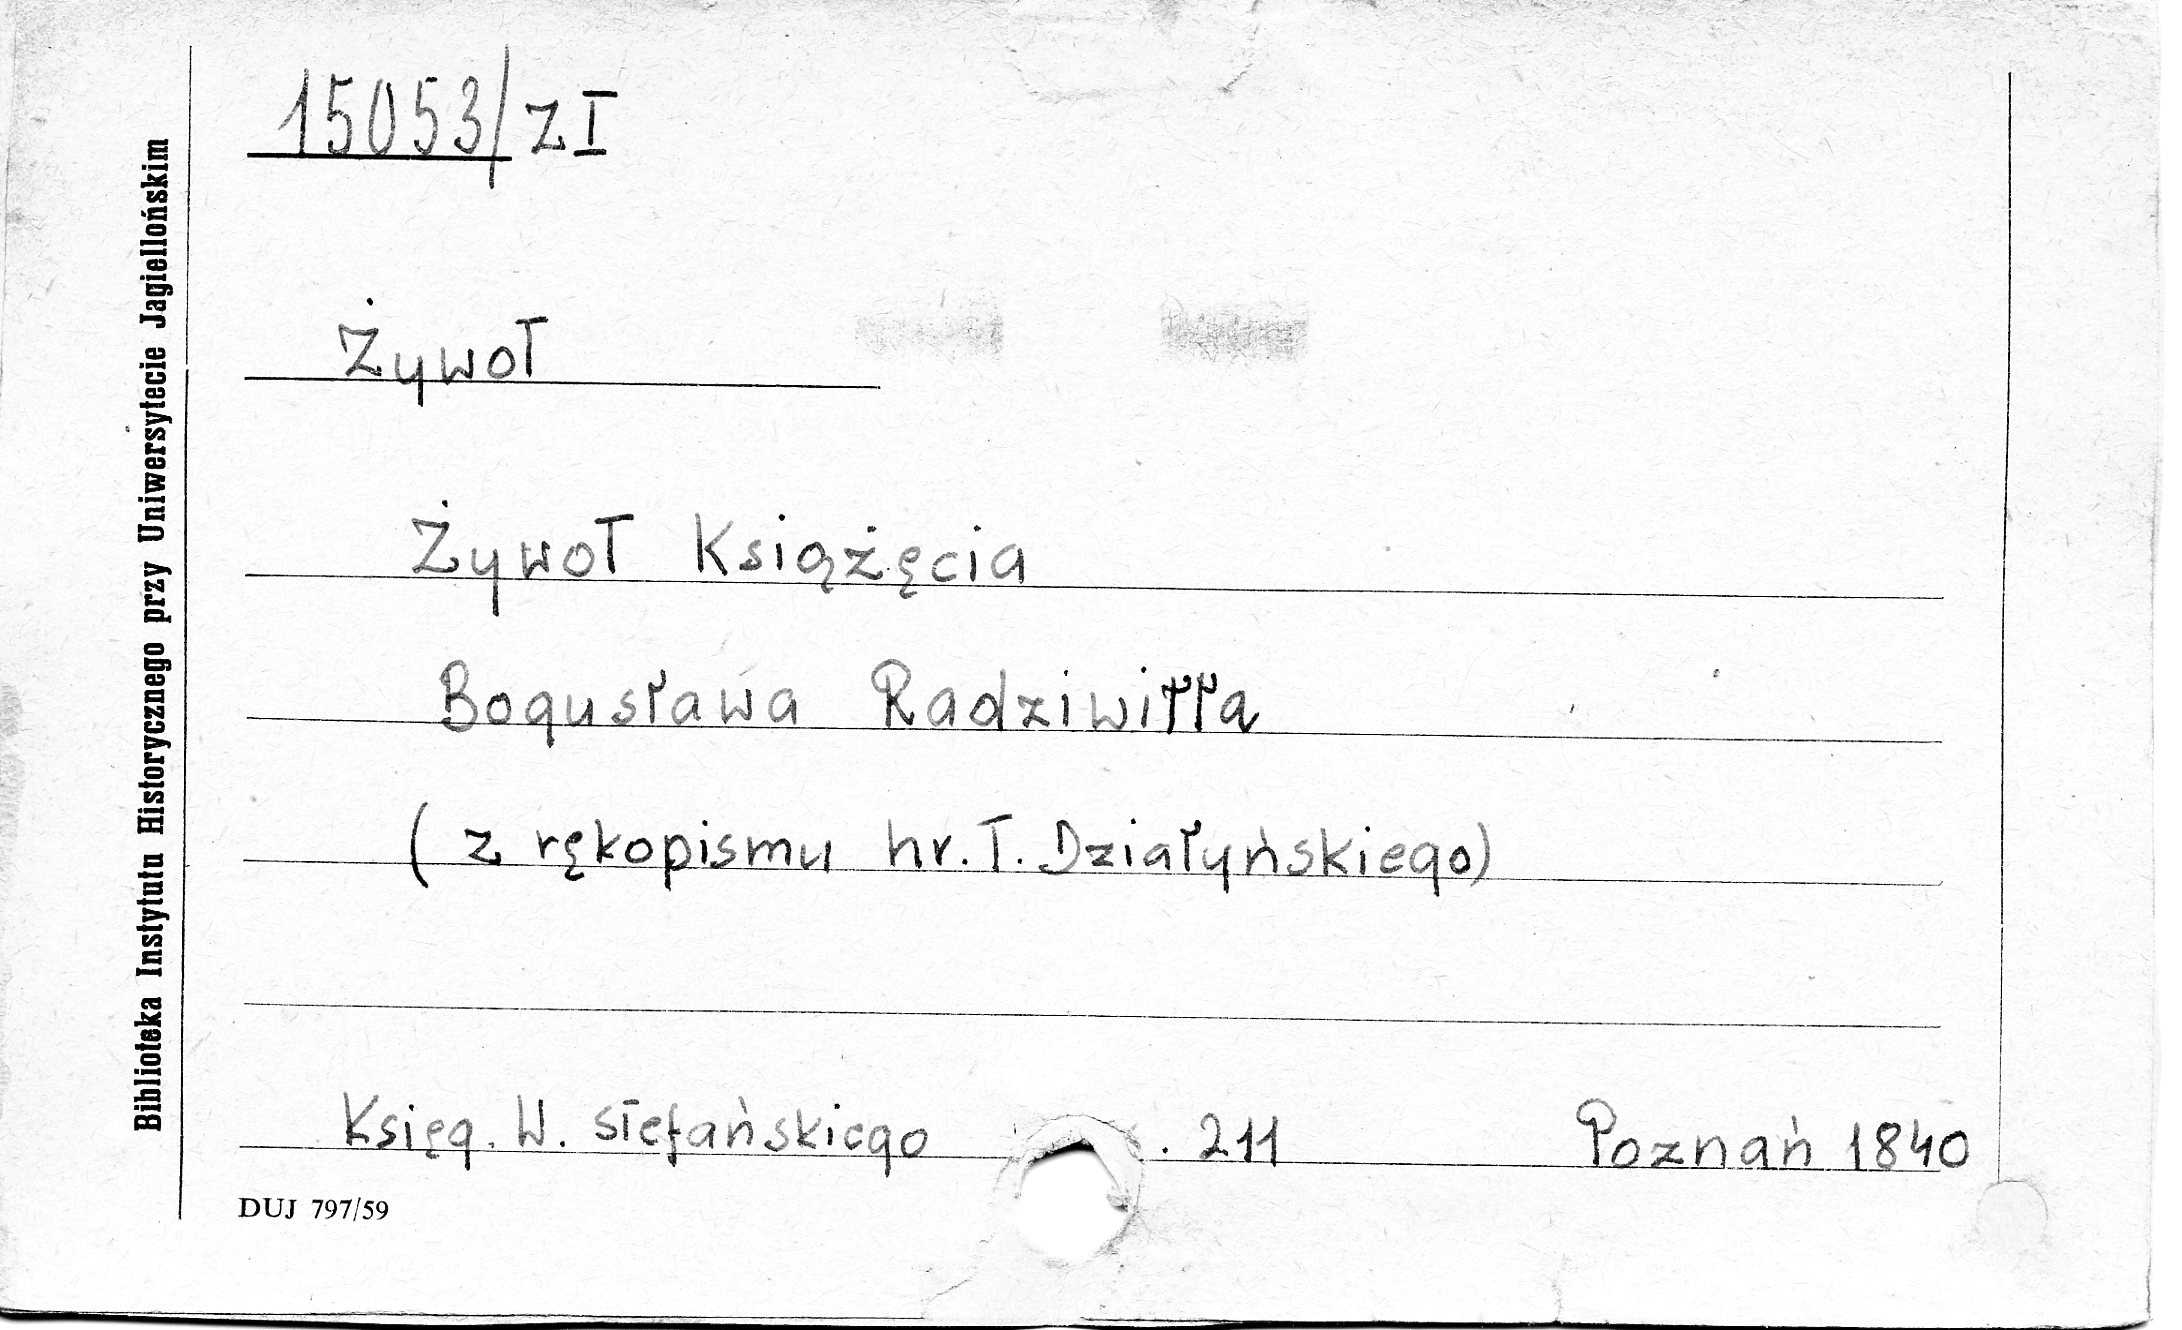 15053/ZI
Żywot
Żywot Książęcia
Bogusława Radziwiłła
(z rękopismu hr. T. Działyńskiego)
Księg. W. Stefańskiego . 211 Poznań 1840
DUJ 797/59
Biblioteka Instytutu Historycznego przy Uniwersytecie Jagiellońskim